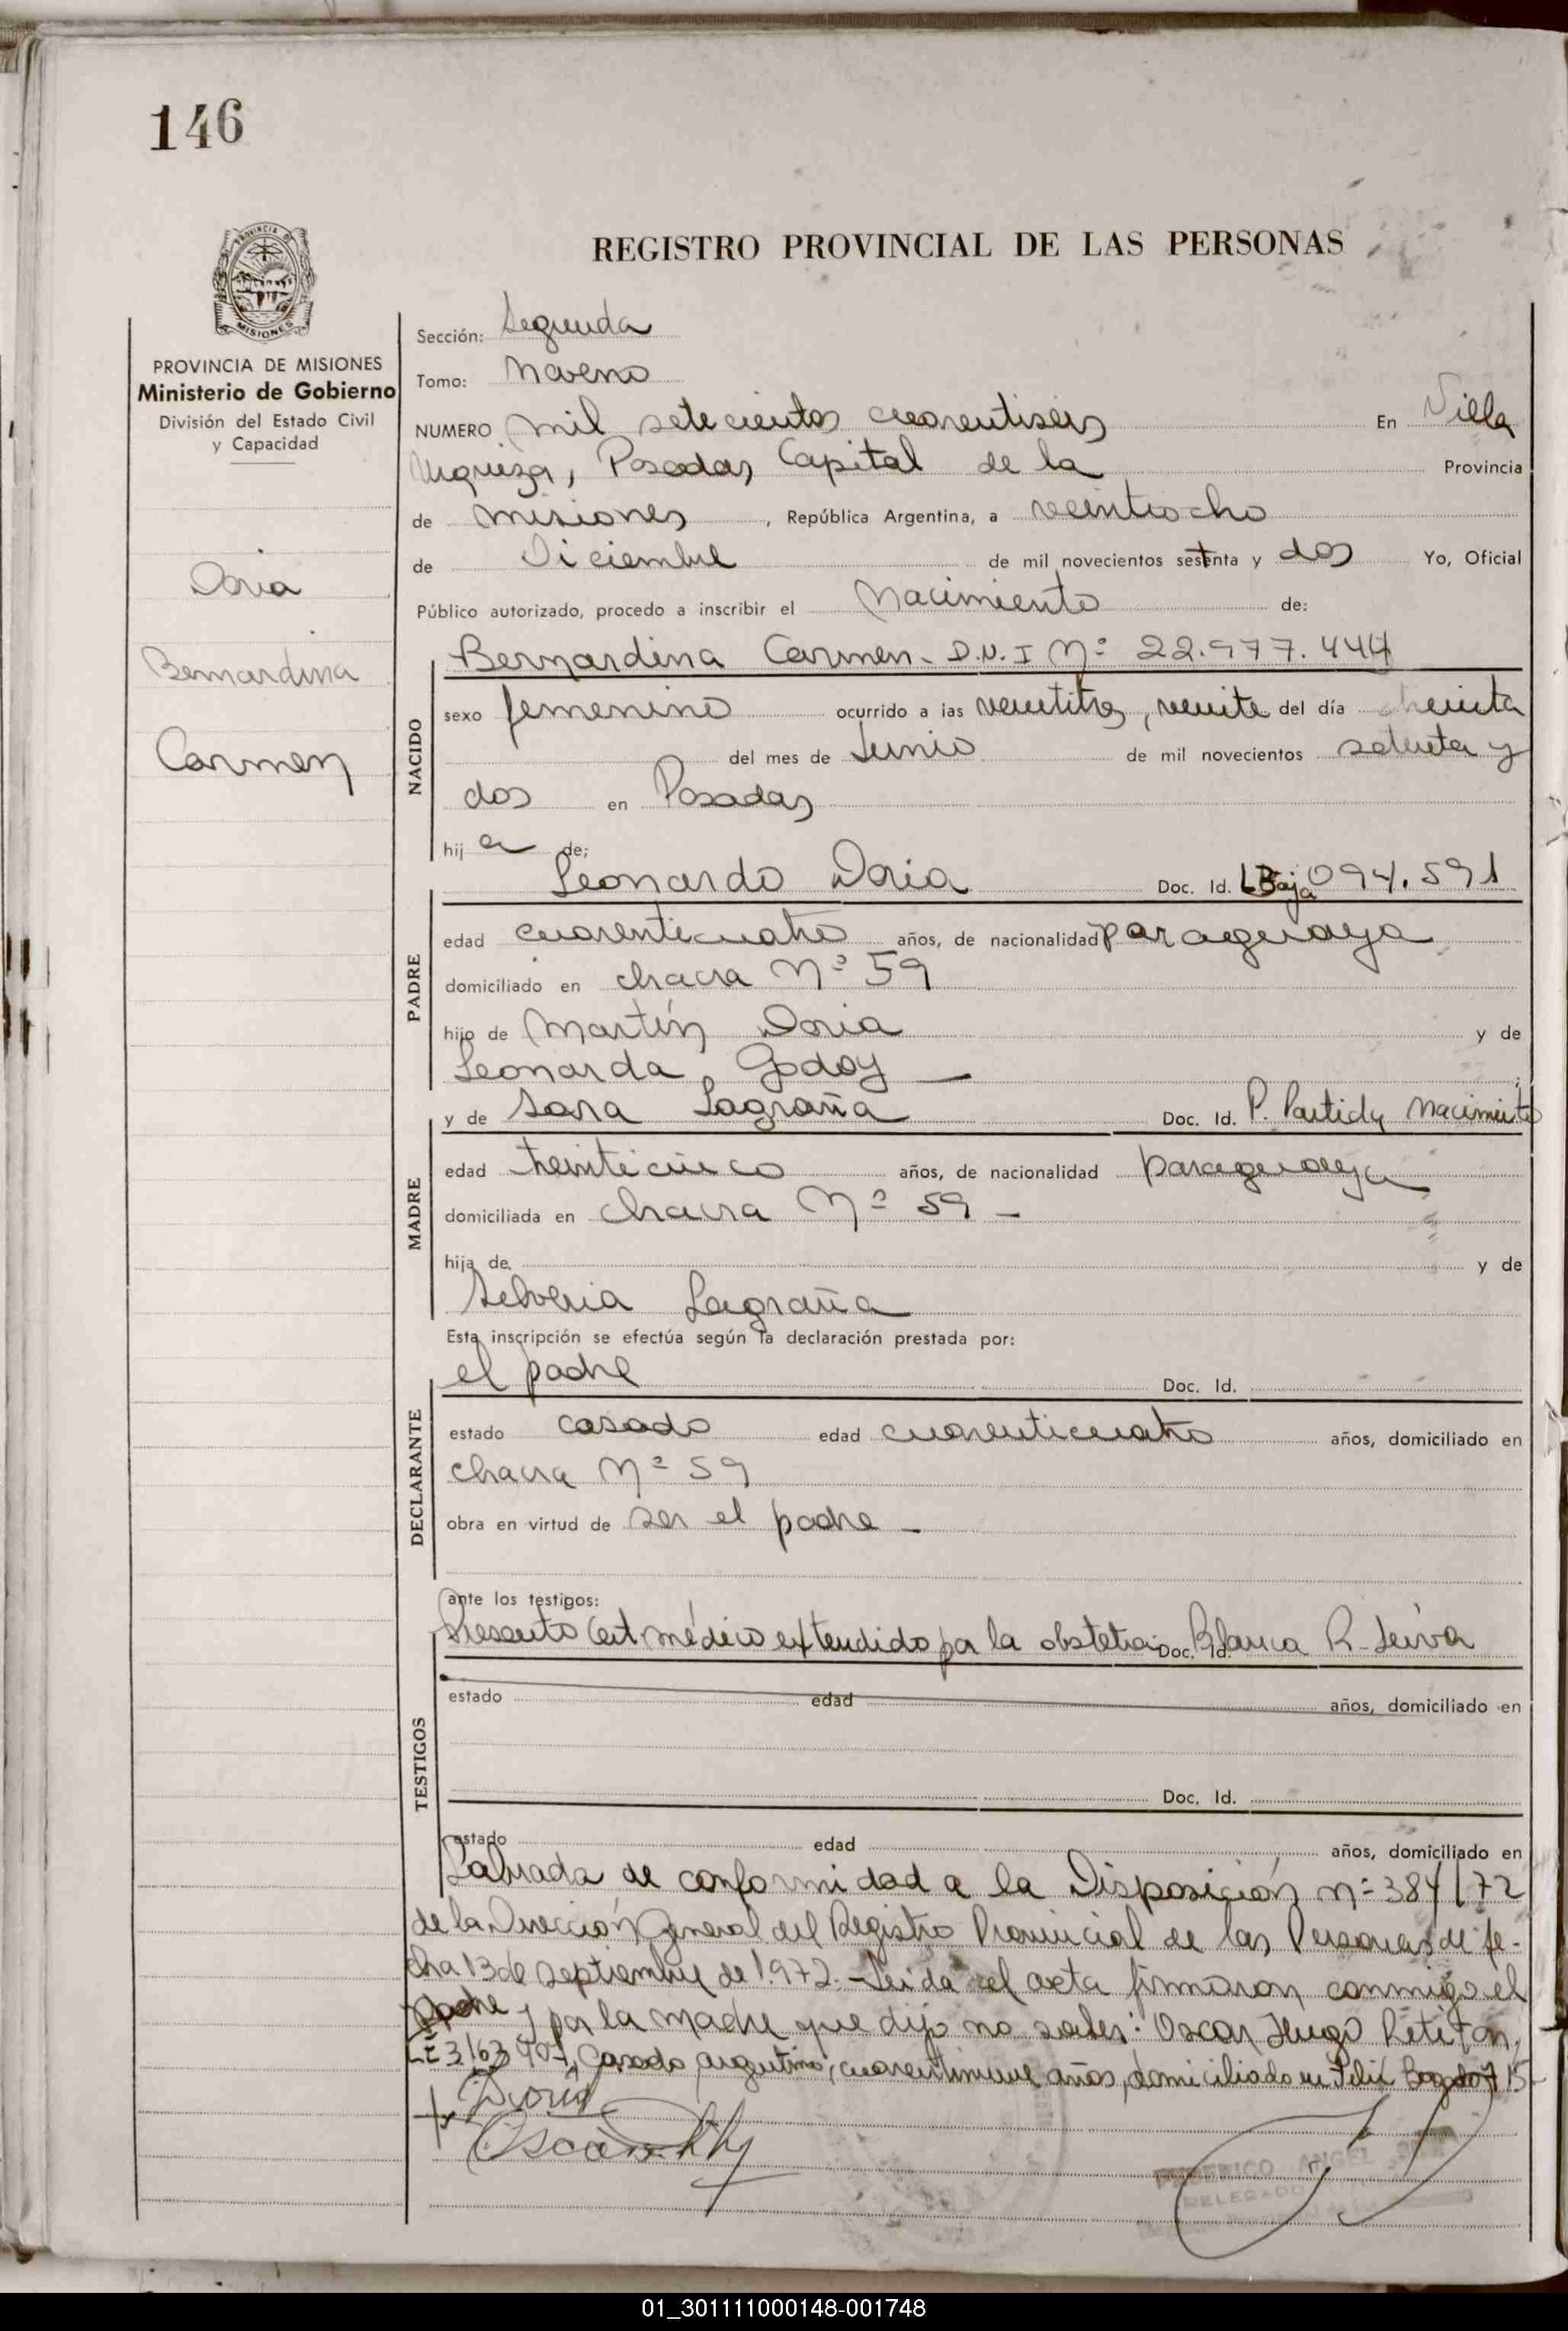 146
PROVINCIA DE MISIONES
Ministerio de Gobierno
División del Estado Civil
y Capacidad
Doria
Bernardina
Carmen
REGISTRO PROVINCIAL DE LAS PERSONAS
Sección: Segunda
Tomo: Noveno
NUMERO mil setecientos cuarentiseis En Villa
Urquiza, Posadas, Capital de la Provincia
de Misiones, República Argentina, a veintiocho
de Diciembre de mil novecientos setenta y dos Yo, Oficial
Público autorizado, procedo a inscribir el Nacimiento de:
Bernardina Carmen - D.N.I Nº 22.977.444
NACIDO
sexo femenino ocurrido a las veintitres, veinte del día treinta
del mes de Junio de mil novecientos setenta y
dos en Posadas
hija de:
PADRE
Leonardo Doria Doc. Id. 094.591
edad cuarenticuatro años, de nacionalidad paraguaya
domiciliado en chacra Nº 59
hijo de Martín Doria y de
Leonarda Godoy —
MADRE
y de Sara Lagraña Doc. Id. P. Partida Nacimiento
edad treinticinco años, de nacionalidad paraguaya
domiciliada en chacra Nº 59 —
hija de y de
Selveria Lagraña
Esta inscripción se efectúa según la declaración prestada por:
DECLARANTE
el padre Doc. Id.
estado casado edad cuarenticuatro años, domiciliado en
chacra Nº 59
obra en virtud de ser el padre —
ante los testigos:
TESTIGOS
Presento Cert. médico extendido por la obstetra Doc. Id. Blanca R. Leiva
estado edad años, domiciliado en
Doc. Id.
estado edad años, domiciliado en
Labrada de conformidad a la Disposición nº 384/72
de la Dirección General del Registro Provincial de las Personas de fe-
cha 13 de septiembre de 1.972. - Leida el acta firmaron conmigo el
padre y por la madre que dijo no saber: Oscar Hugo
casado, argentino, cuarentinueve años, domiciliado en Felix Bogado 715-
Doria
Oscar
ANGEL
DELEGADO
01_301111000148-001748